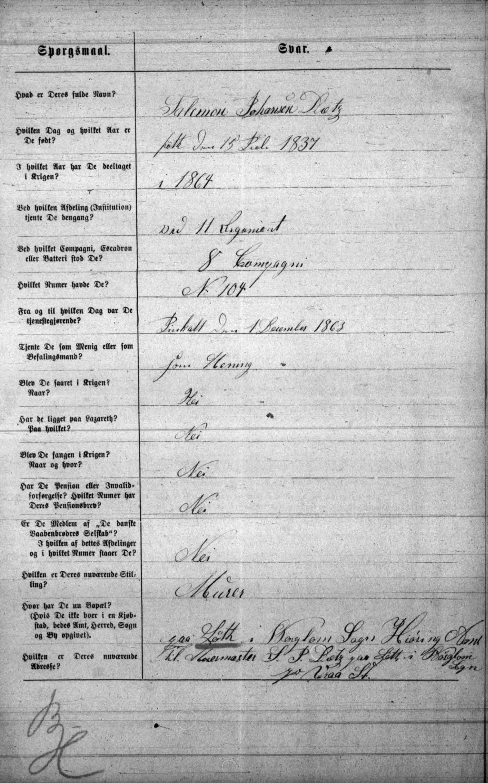 Spørgsmaal.
Svar.
Hvad er Deres fulde Navn?
Salomon Johansen
Hvilken Dag og hvilket Aar er
De født?
født den 15 1837
I hvilket Aar har De deeltaget
i Krigen?
i 1864
Ved hvilken Afdeling (Institution)
tjente De dengang?
ved 11 Regiment
Ved hvilket Compagni, Escadron
eller Batteri stod De?
8 Compagni
Hvilket Numer havde De?
N. 104
Fra og til hvilken Dag var De
tjenestegjørende?
den 1 December 1863
Tjente De som Menig eller som
Befalingsmand?
som Mening
Blev De saaret i Krigen?
Naar?
Nei
Har de ligget paa Lazareth?
Paa hvilket?
Nei
Blev De fangen i Krigen?
Naar og hvor?
Nei
Har De Pension eller Invalid-
forsørgelse? Hvilket Numer har
Deres Pensionsbrev?
Nei
Er De Medlem af „De danske
Vaabenbrødres Selskab"?
I hvilken af dettes Afdelinger
og i hvilket Numer staaer De?
Nei
Hvilken er Deres nuværende Stil-
ling?
Murer
Hvor har De nu Bopæl?
(Hvis De ikke boer i en Kjøb-
stad, bedes Amt, Herred, Sogn
og By opgivet).
i Sogn Hiøring
Hvilken er Deres nuværende
Adresse?
i
Sogn
St.
B-
H